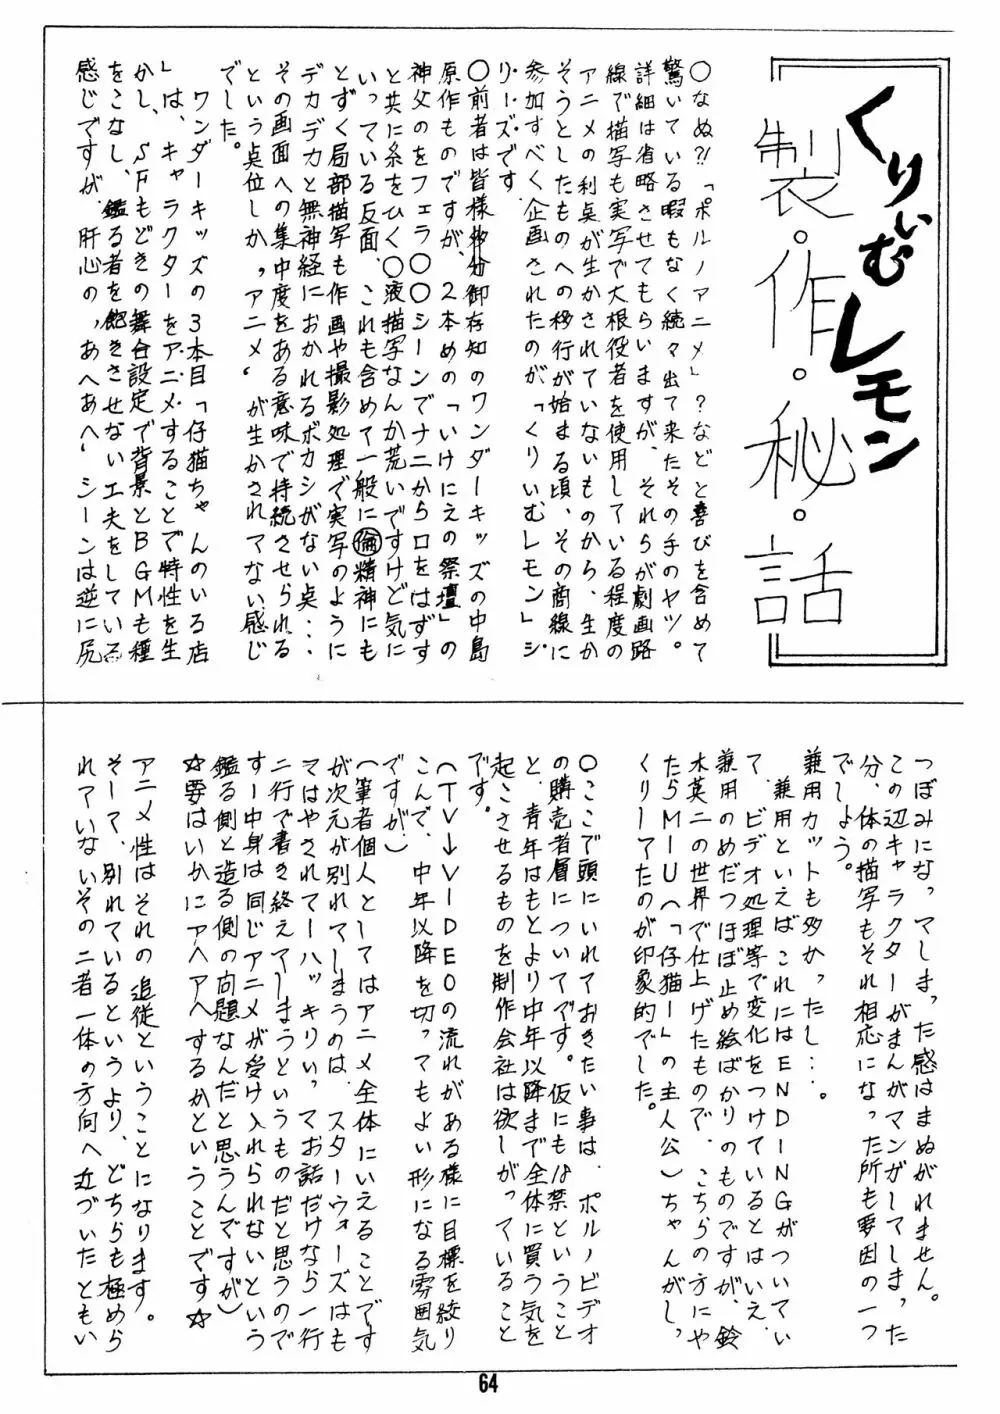 くりぃむレモン
製・作・秘・話
○なぬ?!「ポルノアニメ」？などと喜びを含めて
驚いている暇もなく続々出て来たその手のヤツ。
詳細は省略させてもらいますが、それらが劇画路
線で描写も実写で大根役者を使用している程度の
アニメの利点が生かされていないものから、生か
そうとしたものへの移行が始まる頃、その商線に
参加すべく企画されたのが「くりいむレモン」シ
リーズです。
○前者は皆様多分御存知のワンダーキッズの中島
原作ものですが、2本めの「いけにえの祭壇」の
神父のをフェラ○○シーンでナニから口をはずす
と共に糸をひく○液描写なんか荒いですけど気に
いっている反面、これも含めて一般に倫精神にも
とずく局部描写も作画や撮影処理で実写のように
デカデカと無神経におかれるボカシがない点…
その画面への集中度をある意味で持続させられる
という点位しか〝アニメ〟が生かされてない感じ
でした。
ワンダーキッズの3本目「仔猫ちゃんのいる店
」は、キャラクターをア・ニ・メ・することで特性を生
かし、SFもどきの舞台設定で背景とBGMも種
をこなし、鑑る者を飽きさせない工夫をしている
感じですが、肝心の〝あへあへ〟シーンは逆に尻
つぼみになってしまった感はまぬがれません。
この辺キャラクターがまんがマンがしてしまった
分、体の描写もそれ相応になった所も要因の一つ
でしょう。
兼用カットも多かったし…。
兼用といえばこれにはENDINGがついてい
て、ビデオ処理等で変化をつけているとはいえ、
兼用のめだつほぼ止め絵ばかりのものですが、鈴
木英二の世界で仕上げたもので、こちらの方にや
たらMIU（「仔猫―」の主人公）ちゃんがし
くりーてたのが印象的でした。
○ここで頭にいれておきたい事は、ポルノビデオ
の購売者層についてです。仮にも18禁ということ
と、青年はもとより中年以降まで全体に買う気を
起こさせるものを制作会社は欲しがっていること
です。
（TV→VIDEOの流れがある様に目標を絞り
こんで、中年以降を切ってもよい形になる雰囲気
ですが）
（筆者個人としてはアニメ全体にいえることです
が次元が別れてしまうのは、スターウォーズはも
てはやされてーハッキリいってお話だけなら一行
二行で書き終えてしまうというものだと思うので
すー中身は同じアニメが受け入れられないという
鑑る側と造る側の問題なんだと思うんですが）
☆要はいかにアヘアヘするかということです☆
アニメ性はそれの追従ということになります。
そーて、別れているというより、どちらも極めら
れていないその二者一体の方向へ近づいたともい
64